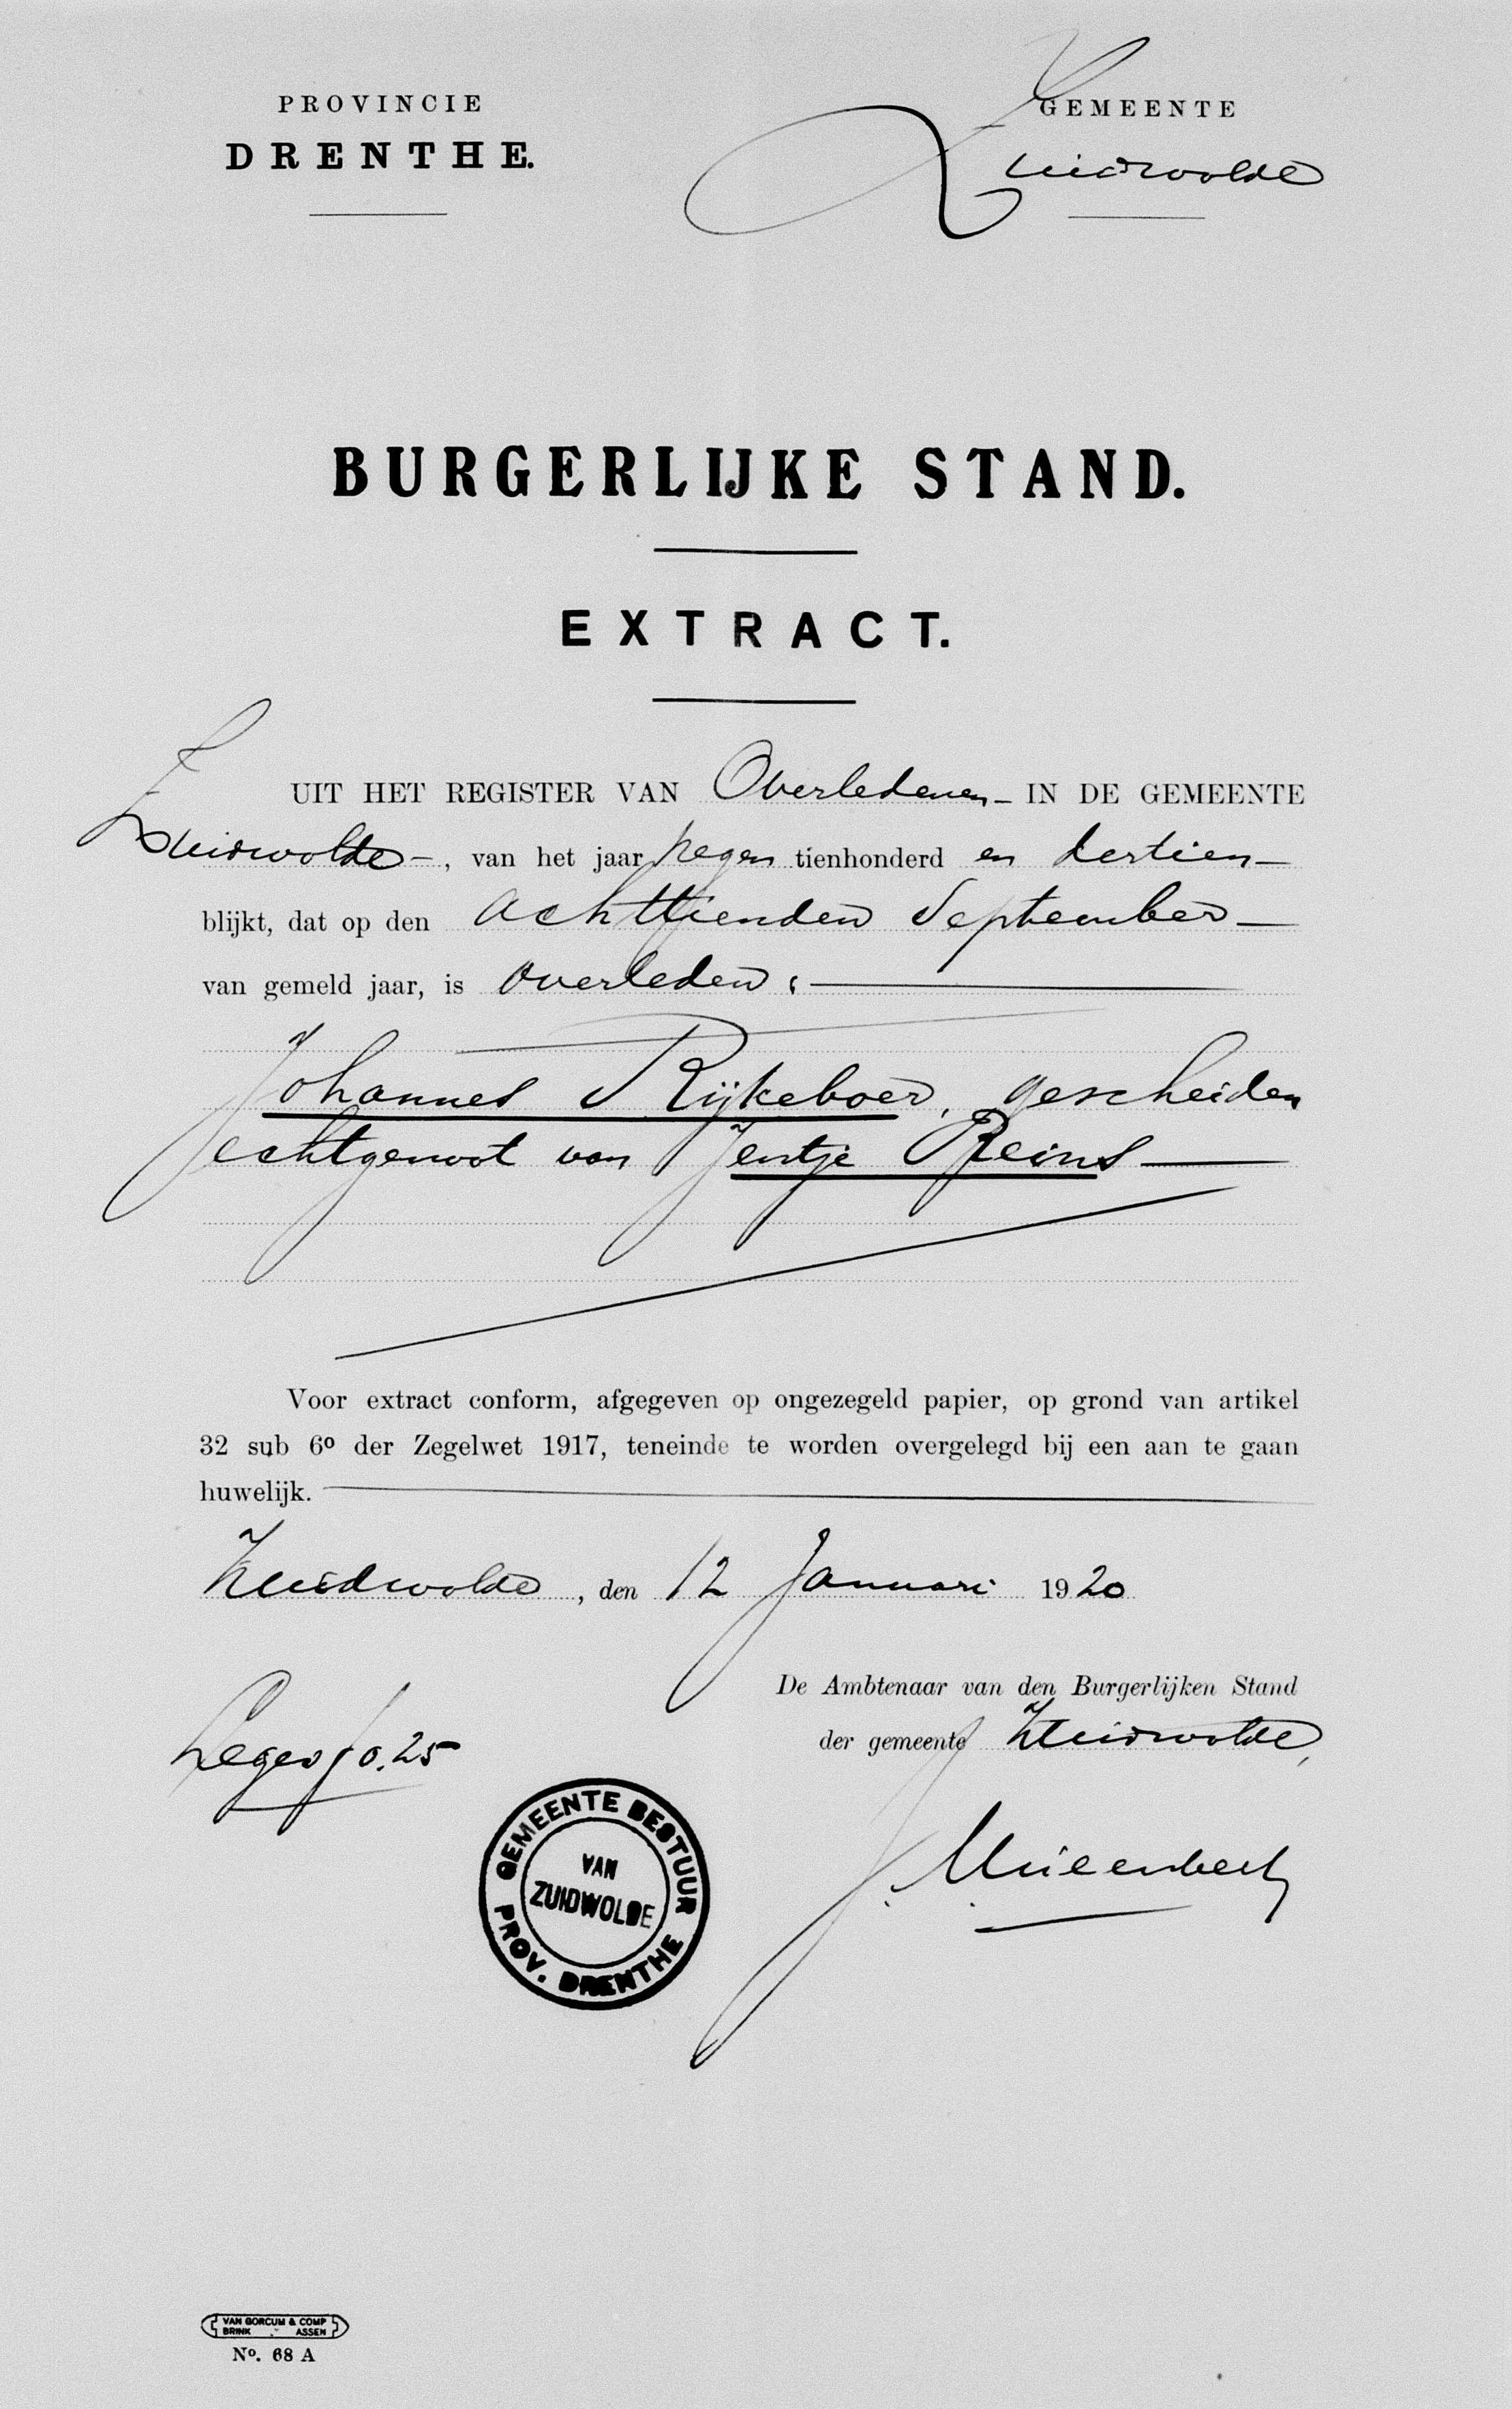 PROVINCIE
DRENTHE.
GEMEENTE
Zuidwolde
BURGERLIJKE STAND.
EXTRACT.
UIT HET REGISTER VAN Overledenen – IN DE GEMEENTE
Zuidwolde –, van het jaar negen tienhonderd en dertien –
blijkt, dat op den achttienden September –
van gemeld jaar, is overleden: –
Johannes Rijkeboer, gescheiden
echtgenoot van Jentje Reins –
Voor extract conform, afgegeven op ongezegeld papier, op grond van artikel
32 sub 6º der Zegelwet 1917, teneinde te worden overgelegd bij een aan te gaan
huwelijk. –
Zuidwolde, den 12 Januari 1920
De Ambtenaar van den Burgerlijken Stand
der gemeente Zuidwolde,
Leges f 0.25
GEMEENTE BESTUUR
VAN
ZUIDWOLDE
PROV. DRENTHE
VAN GORCUM & COMP
BRINK ASSEN
Nº. 68 A